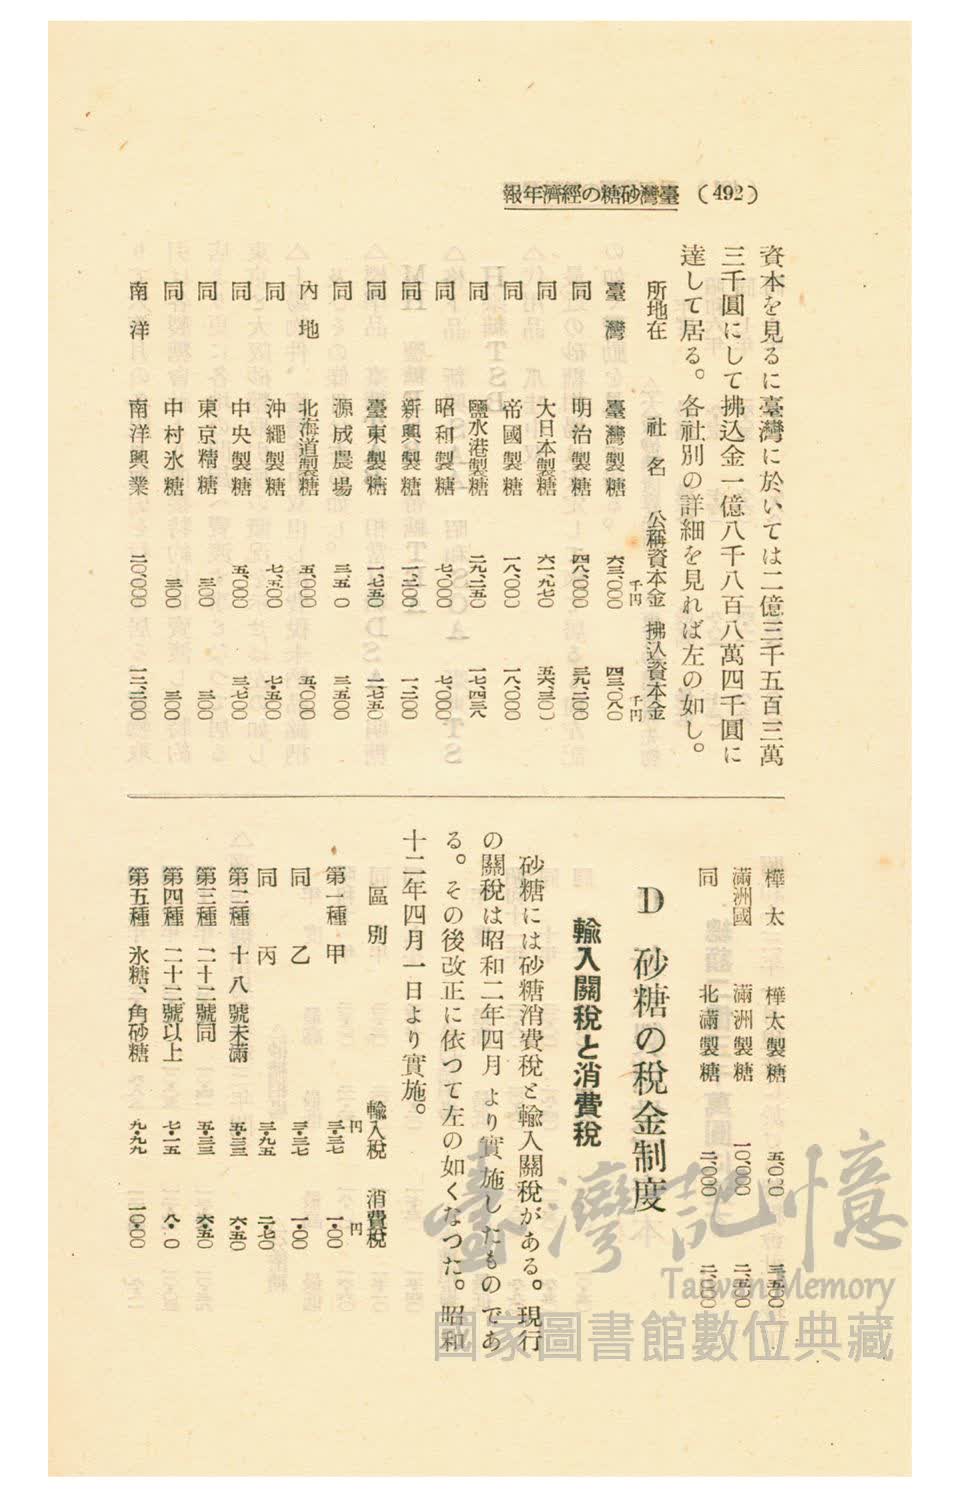 (492) 臺灣砂糖の經濟年報
資本を見るに臺灣に於いては二億三千五百三萬
三千圓にして拂込金一億八千八百八萬四千圓に
達して居る。各社別の詳細を見れば左の如し。
所地在 社名 公稱資本金 拂込資本金
千円 千円
臺灣 臺灣製糖 六三、〇〇〇 四三、〇八〇
同 明治製糖 四八、〇〇〇 三九、二〇〇
同 大日本製糖 六一、九七〇
同 帝國製糖 一八、〇〇〇 一八、〇〇〇
同 鹽水港製糖 二九、二五〇 一七、四三八
同 昭和製糖 七、〇〇〇 七、〇〇〇
同 新興製糖 一、二〇〇 一、二〇〇
同 臺東製糖 一、七五〇 一、七五〇
同 源成農場 三五〇 三五〇〇
內地 北海道製糖 五、〇〇〇 五、〇〇〇
同 沖繩製糖 七、五〇〇 七、五〇〇
同 中央製糖 五、〇〇〇 三、七〇〇
同 東京精糖 三〇〇 三〇〇
同 中村氷糖 三〇〇 三〇〇
南洋 南洋興業 二〇、〇〇〇 一二、二〇〇
樺太 樺太製糖 五、〇〇〇 三、五〇〇
滿洲國 滿洲製糖 一〇、〇〇〇 二、五〇〇
同 北滿製糖 二、〇〇〇 二、〇〇〇
D 砂糖の稅金制度
輸入關稅と消費稅
砂糖には砂糖消費稅と輸入關稅がある。現行
の關稅は昭和二年四月より實施したものであ
る。その後改正に依つて左の如くなつた。昭和
十二年四月一日より實施。
區別 輸入稅 消費稅
円 円
第一種 甲 三・三七 一・〇〇
同 乙 三・三七 一・〇〇
同 丙 三・九五 二・七〇
第二種 十八號未滿 五・三三 六・五〇
第三種 二十二號同 五・三三 六・五〇
第四種 二十二號以上 七・二五 八・〇
第五種 氷糖、角砂糖 九・九九 一〇・〇〇
臺灣記憶
Taiwan Memory
國家圖書館數位典藏